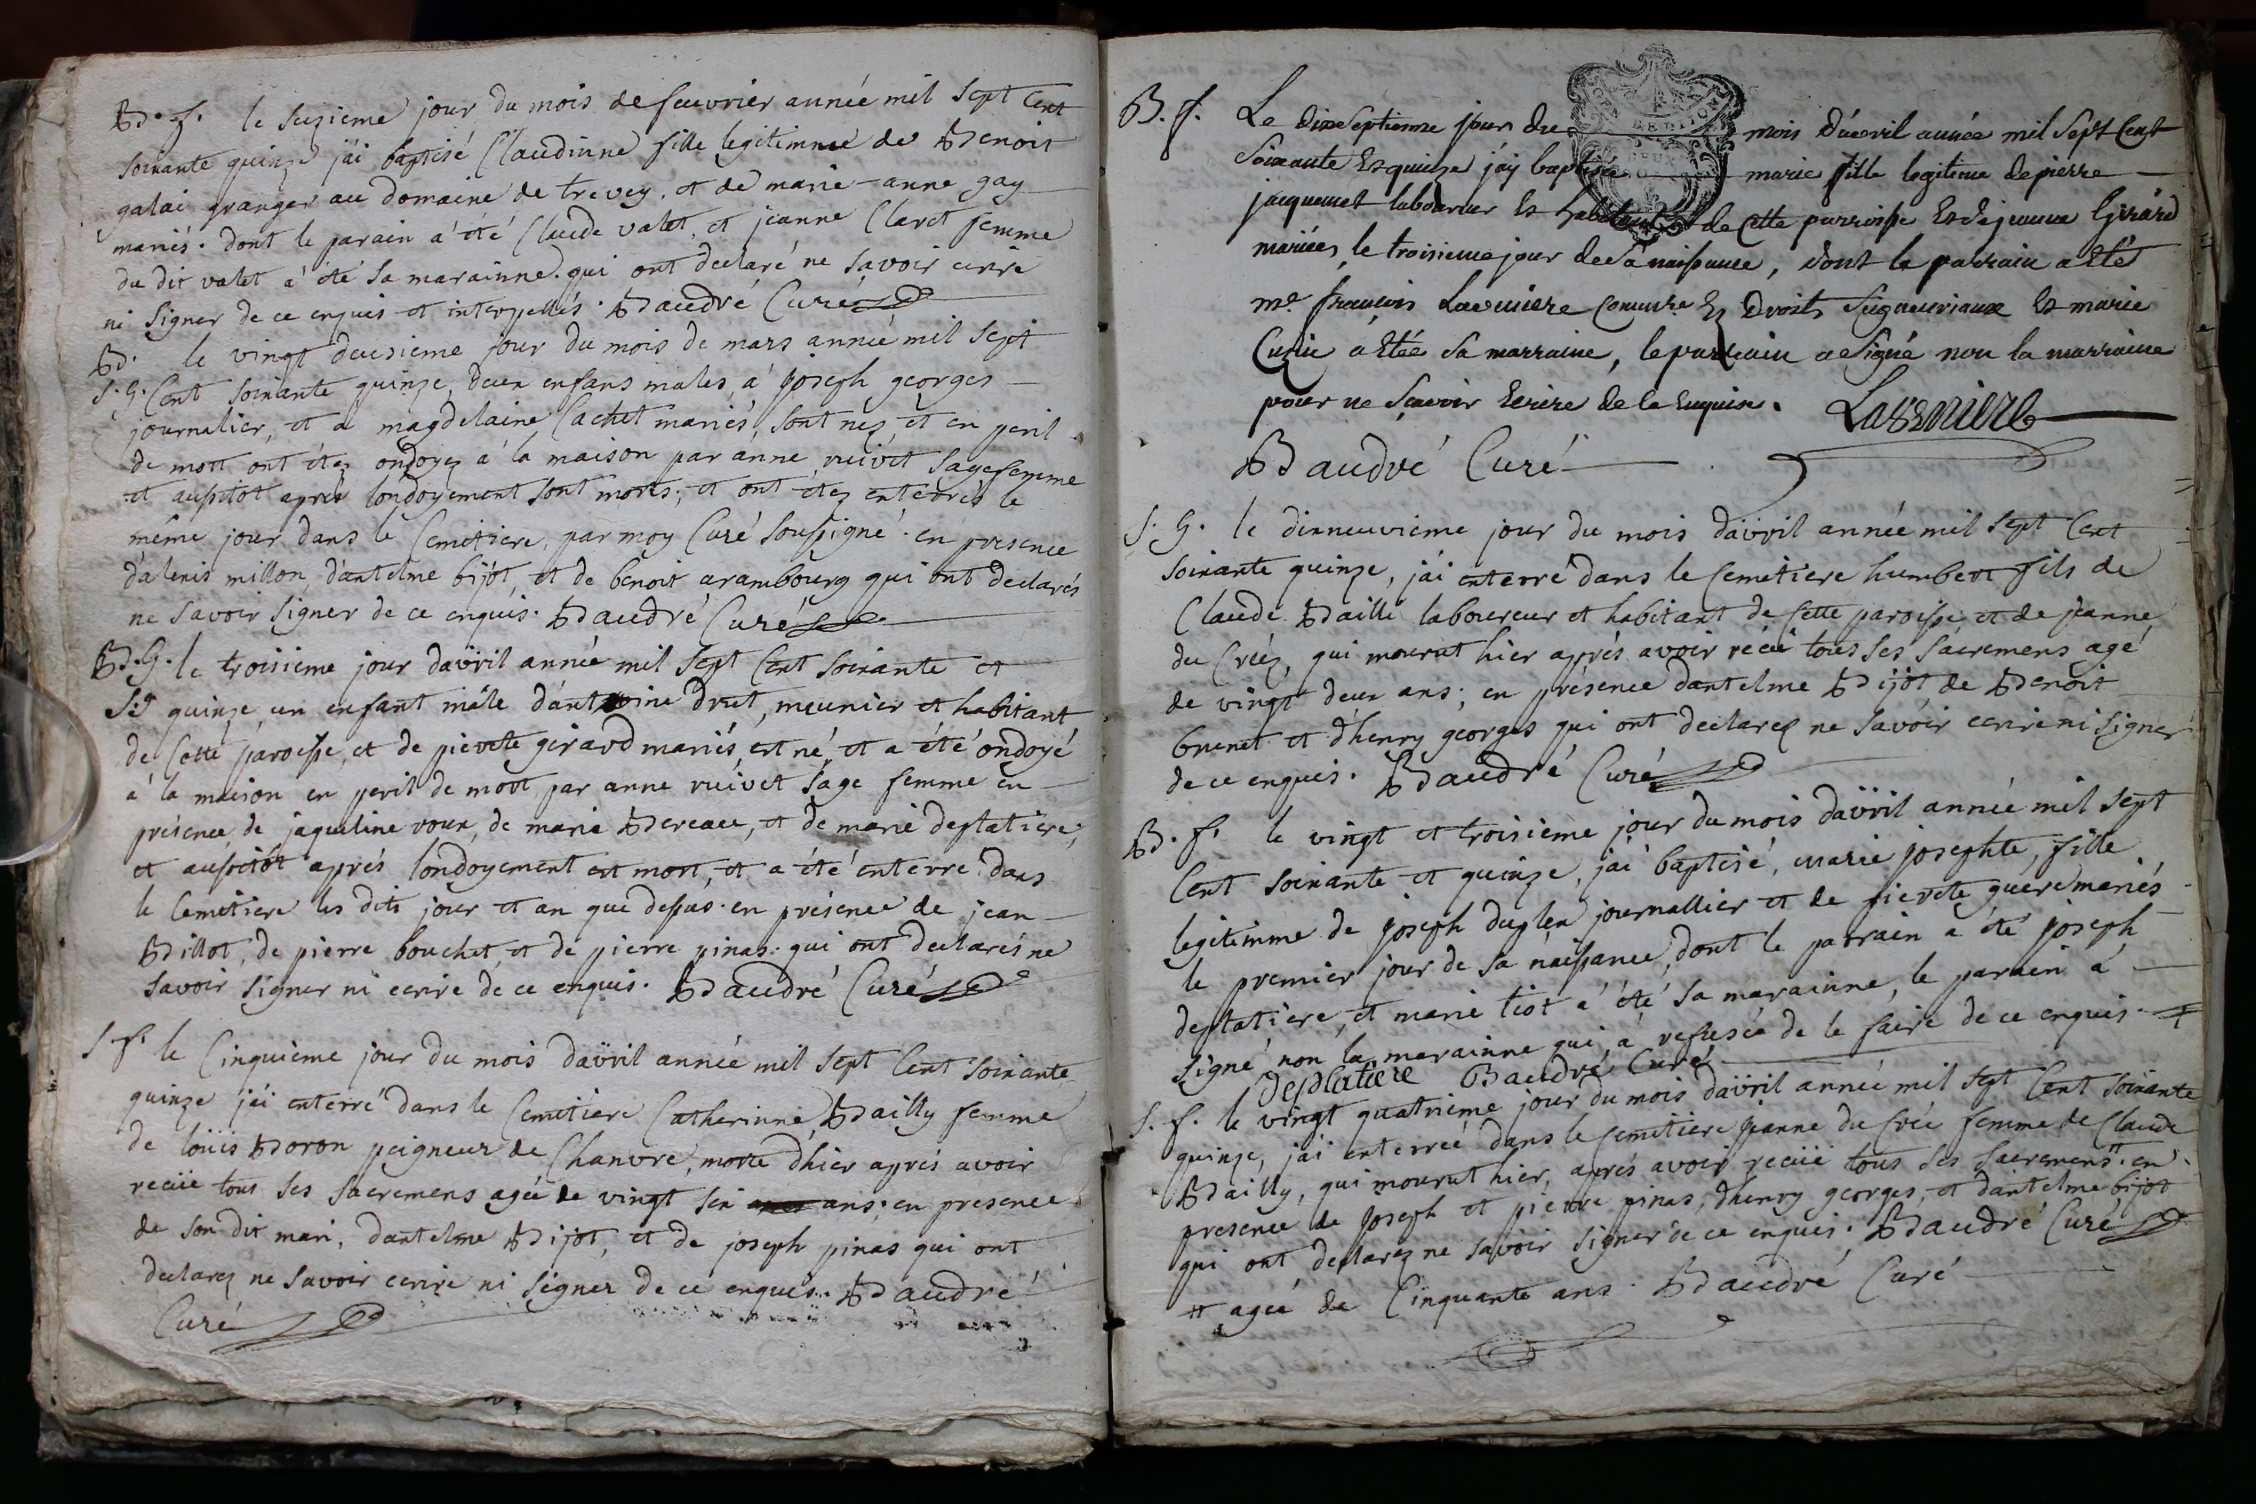 B. f. le seizieme jour du mois de feuvrier année mil sept Cent
soixante quinze j'ai baptisé Claudinne fille legitimme de Benoit
galai granger au domaine de trevey, et de marie-anne gay
mariés. dont le parain a été Claude valet, et jeanne Claret femme
du dit valet a été sa marainne. qui ont declaré ne savoir ecrire
ni signer de ce enquis et interpellés. Baudré Curé
B. le vingt deuxieme jour du mois de mars année mil sept
S.G. Cent soixante quinze, deux enfans males, á joseph georges
journalier, et á magdelaine Cachet mariés, sont nés, et en peril
de mort ont étez ondoyez á la maison par anne vuivet sagefemme
et aussitot aprés londoyement sont morts; et ont étez enterrés le
même jour dans le Cemetiere, par moy Curé soussigné. en presence
d'alexis millon, d'antelme bijot, et de benoit arambourg qui ont declarés
ne savoir signer de ce enquis. Baudré Curé
B.G. le troisieme jour davril année mil sept Cent soixante et
S.G quinze, un enfant mâle d'antoine drut, meunier et habitant
de cette paroisse, et de pierrete giraud mariés, est né, et a été ondoyé
á la maison en peril de mort par anne vuivet sage femme en
présence de jaqueline roux, de marie Bereau, et de marie deplatiere;
et aussitôt aprés londoyement est mort, et a été enterré dans
le Cemetiere les dits jour et an que dessus. en présence de jean
Billot, de pierre bouchet, et de pierre pinas. qui ont declarés ne
savoir signer ni ecrire de ce enquis. Baudré Curé
S f. le Cinquieme jour du mois davril année mil sept Cent soixante
quinze j'ai enterré dans le Cemetiere Catherinne Bailly femme
de loüis Boron peigneur de Chanvre, morte d'hier aprés avoir
reçüe tous ses sacremens agée de vingt six ans; en presence
de son dit mari, dantelme Bijot, et de joseph pinas qui ont
declarez ne savoir ecrire ni signer de ce enquis. Baudré
Curé
B. f. Le dixseptieme jour du mois d'avril année mil sept Cent
Soixante Et quinze j'ay baptisé marie fille legitime de pierre
jacquemet laboureur Et habitant de Cette parroisse Et de jeanne Girard
mariées, le troisieme jour de sa naissance, dont le parrain a Eté
me. françois Lavuniere Commre. Es Droits Seigneuriaux Et marie
á Etée Sa marraine, le parrain a Signé non la marraine
pour ne Sçavoir Ecrire de le Enquise.
Baudré Curé
S. G. le dixneuvieme jour du mois davril année mil sept Cent
soixante quinze, j'ai enterré dans le Cemetiere humbert fils de
Claude Bailli laboureur et habitant de Cette paroisse et de jeanne
du Créz, qui mourut hier aprés avoir réçü tous ses sácremens agé
de vingt deux ans; en présence dantelme Bijot de Benoit
brunet et d'henry georges qui ont declarez ne savoir ecrire ni signer
de ce enquis. Baudré Curé
B. f. le vingt et troisieme jour du mois davril année mil sept
Cent soixante et quinze, j'ai baptisé, marie josephte, fille
legitimme de joseph duplex journallier et de pierete guére mariés
le premier jour de sa naissance, dont le parrain a été joseph
deplatiere, et marie tiot a été sa marainne, le parain á
signé non la marainne qui a refusée de le faire de ce enquis.
Desplatiere Baudré Curé
S. f. le vingt quatrieme jour du mois davril année mil sept Cent soixante
quinze, j'ai enterreé dans le Cemetiere jeanne du Créz femme de Claude
Bailly, qui mourut hier, aprés avoir reçüe tous ses sacremens # en
presence de joseph et pierre pinas, d'henry georges, et dantelme bijot
qui ont declarez ne savoir signer de ce enquis. Baudré Curé
# agée de Cinquante ans. Baudré Curé